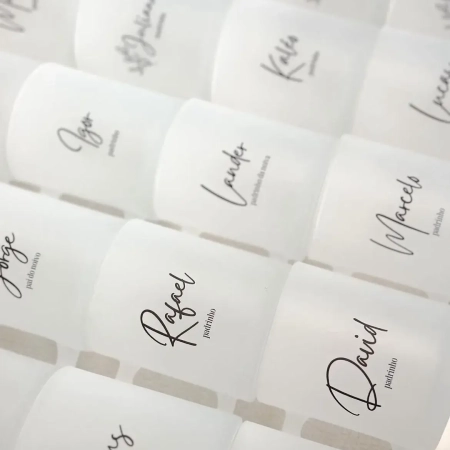 Juliano
Kaléo
Lucas
Igor
padrinho
Lander
padrinho da noiva
Marcelo
padrinho
Jorge
pai do noivo
Rafael
padrinho
David
padrinho